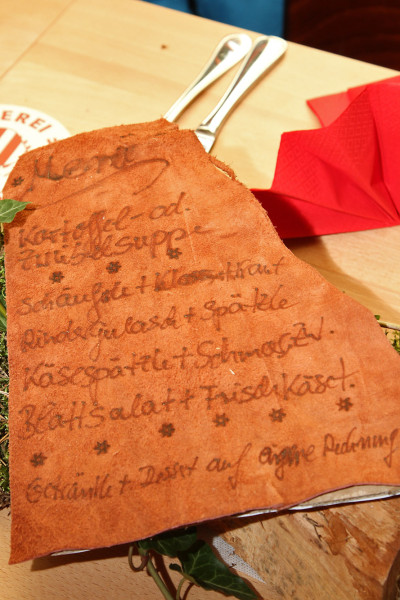 EREI
Menü
Kartoffel- od.
Zwiebelsuppe
Schäufele + Kraut
Rindergulasch + Spätzle
Käsespätzle + Schmorzw.
Blattsalat + Frischkäset.
Getränke + Dessert auf eigene Rechnung